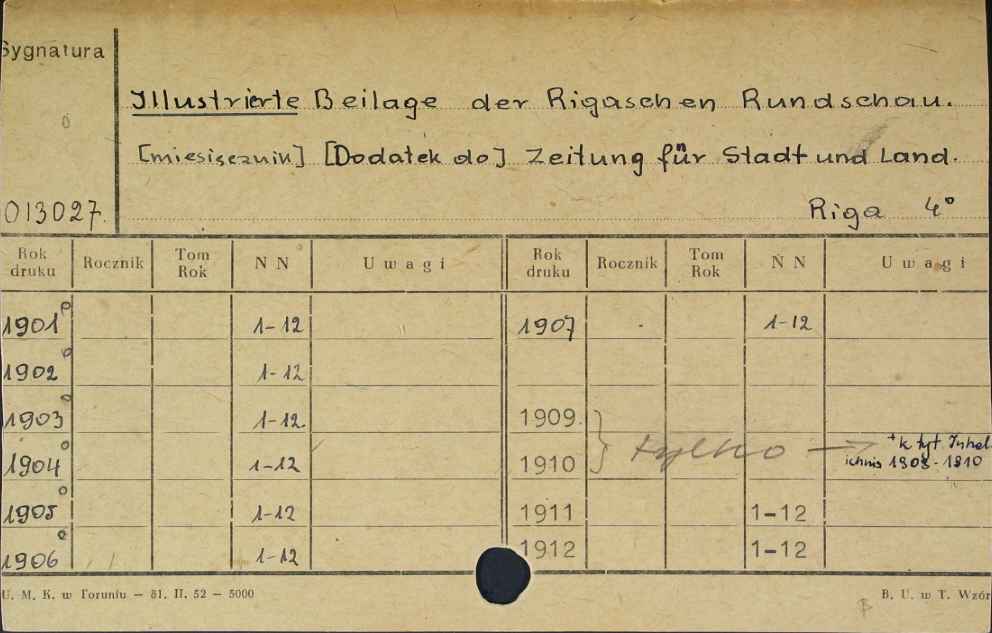 Sygnatura
Illustrierte Beilage der Rigaschen Rundschau.
[miesięcznik] [Dodatek do] Zeitung für Stadt und Land.
013027.
Riga 4°
Rok druku Rocznik Tom Rok N N Uwagi Rok druku Rocznik Tom Rok N N Uwagi
1901° 1-12 1907 1-12
1902° 1-12
1903° 1-12 1909.
1904° 1-12 1910 tylko → +k tyt Inhal
ichnis 1908-1910
1905° 1-12 1911 1-12
1906° 1-12 1912 1-12
U. M. K. w Toruniu — 31. II. 52 — 5000
B. U. w T. Wzór